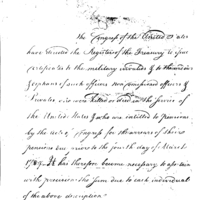 the Congress of the United States
have directed the Register of the Treasury to issue
certificates to the military invalids & to the widows
& orphans of such officers non commissioned officers &
Privates as was killed or died in the service of
the United States & who are entitled to pensions
by the acts of Congress for the arrears of their
pensions due prior to the fourth day of March
1789. It has therefore become necessary to ascertain
with precision the sum due to each individual
of the above description